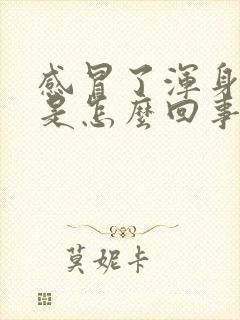 感冒了渾身
是怎麼回事
莫妮卡